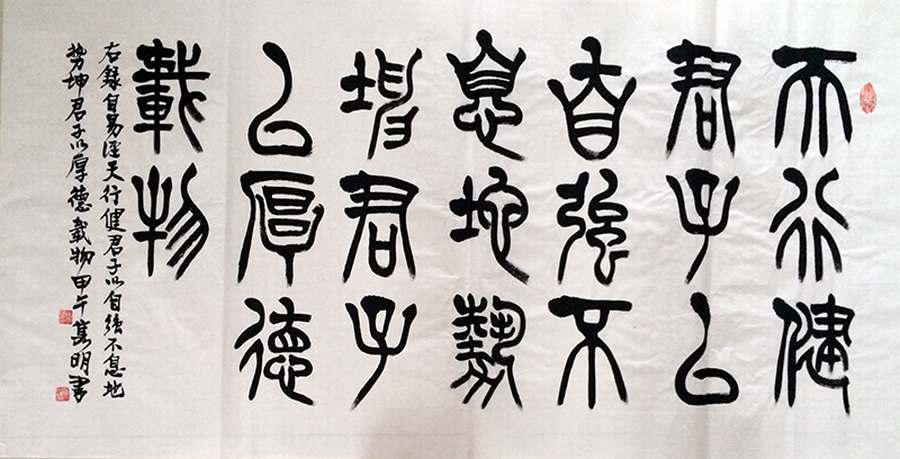 天行健
君子以
自强不
息地勢
坤君子
以厚德
載物
右錄自易經天行健君子以自强不息地
势坤君子以厚德載物甲午明書